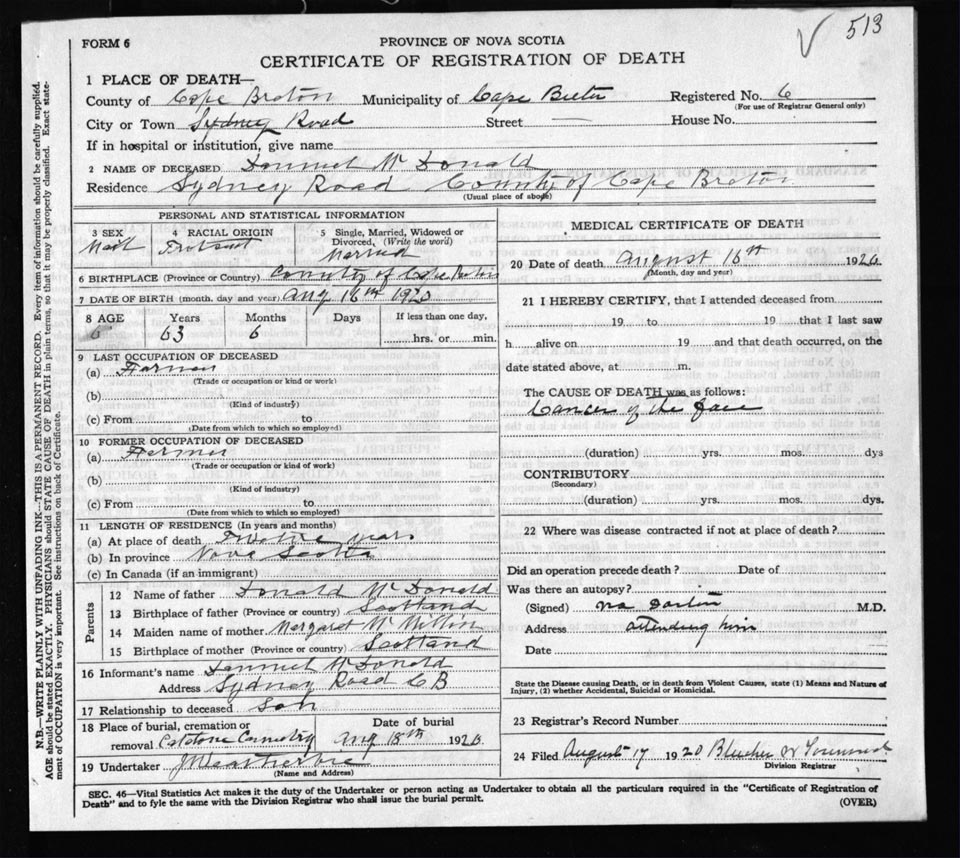 513
FORM 6
PROVINCE OF NOVA SCOTIA
CERTIFICATE OF REGISTRATION OF DEATH
1 PLACE OF DEATH—
County of Cape Breton Municipality of Cape Registered No. 6
(For use of Registrar General only)
City or Town Sydney Road Street — House No.
If in hospital or institution, give name
2 NAME OF DECEASED McDonald
Residence Sydney Road County of Cape Breton
(Usual place of abode)
PERSONAL AND STATISTICAL INFORMATION
3 SEX
4 RACIAL ORIGIN
5 Single, Married, Widowed or Divorced, (Write the word)
Married
6 BIRTHPLACE (Province or Country) County of Cape Breton
7 DATE OF BIRTH (month, day and year) Aug 16th 1920
8 AGE Years Months Days If less than one day,
6 63 6 hrs. or min.
9 LAST OCCUPATION OF DECEASED
(a) Farmer
(Trade or occupation or kind or work)
(b)
(Kind of industry)
(c) From to
(Date from which to which so employed)
10 FORMER OCCUPATION OF DECEASED
(a) Farmer
(Trade or occupation or kind or work)
(b)
(Kind of industry)
(c) From to
(Date from which to which so employed)
11 LENGTH OF RESIDENCE (In years and months)
(a) At place of death Twelve years
(b) In province Nova Scotia
(c) In Canada (if an immigrant)
Parents
12 Name of father Donald McDonald
13 Birthplace of father (Province or country) Scotland
14 Maiden name of mother Margaret
15 Birthplace of mother (Province or country) Scotland
16 Informant's name McDonald
Address Sydney Road CB
17 Relationship to deceased Son
18 Place of burial, cremation or removal Date of burial
Aug 18th 1920.
19 Undertaker
(Name and Address)
MEDICAL CERTIFICATE OF DEATH
20 Date of death August 16th 1920.
(Month, day and year)
21 I HEREBY CERTIFY, that I attended deceased from
19 to 19 that I last saw
h alive on 19 and that death occurred, on the
date stated above, at m.
The CAUSE OF DEATH was as follows:
Cancer of the face
(duration) yrs. mos. dys
CONTRIBUTORY
(Secondary)
(duration) yrs. mos. dys.
22 Where was disease contracted if not at place of death?
Did an operation precede death? Date of
Was there an autopsy?
(Signed) no Doctor M.D.
Address attending him
Date
State the Disease causing Death, or in Death from Violent Causes, state (1) Means and Nature of
Injury, (2) whether Accidental, Suicidal or Homicidal.
23 Registrar's Record Number
24 Filed August 17 1920
Division Registrar
SEC. 46—Vital Statistics Act makes it the duty of the Undertaker or person acting as Undertaker to obtain all the particulars required in the "Certificate of Registration of
Death" and to fyle the same with the Division Registrar who shall issue the burial permit. (OVER)
N.B.—WRITE PLAINLY WITH UNFADING INK—THIS IS A PERMANENT RECORD. Every item of information should be carefully supplied.
AGE should be stated EXACTLY. PHYSICIANS should STATE CAUSE OF DEATH in plain terms, so that it may be properly classified. Exact state-
ment of OCCUPATION is very important. See instructions on back of Certificate.